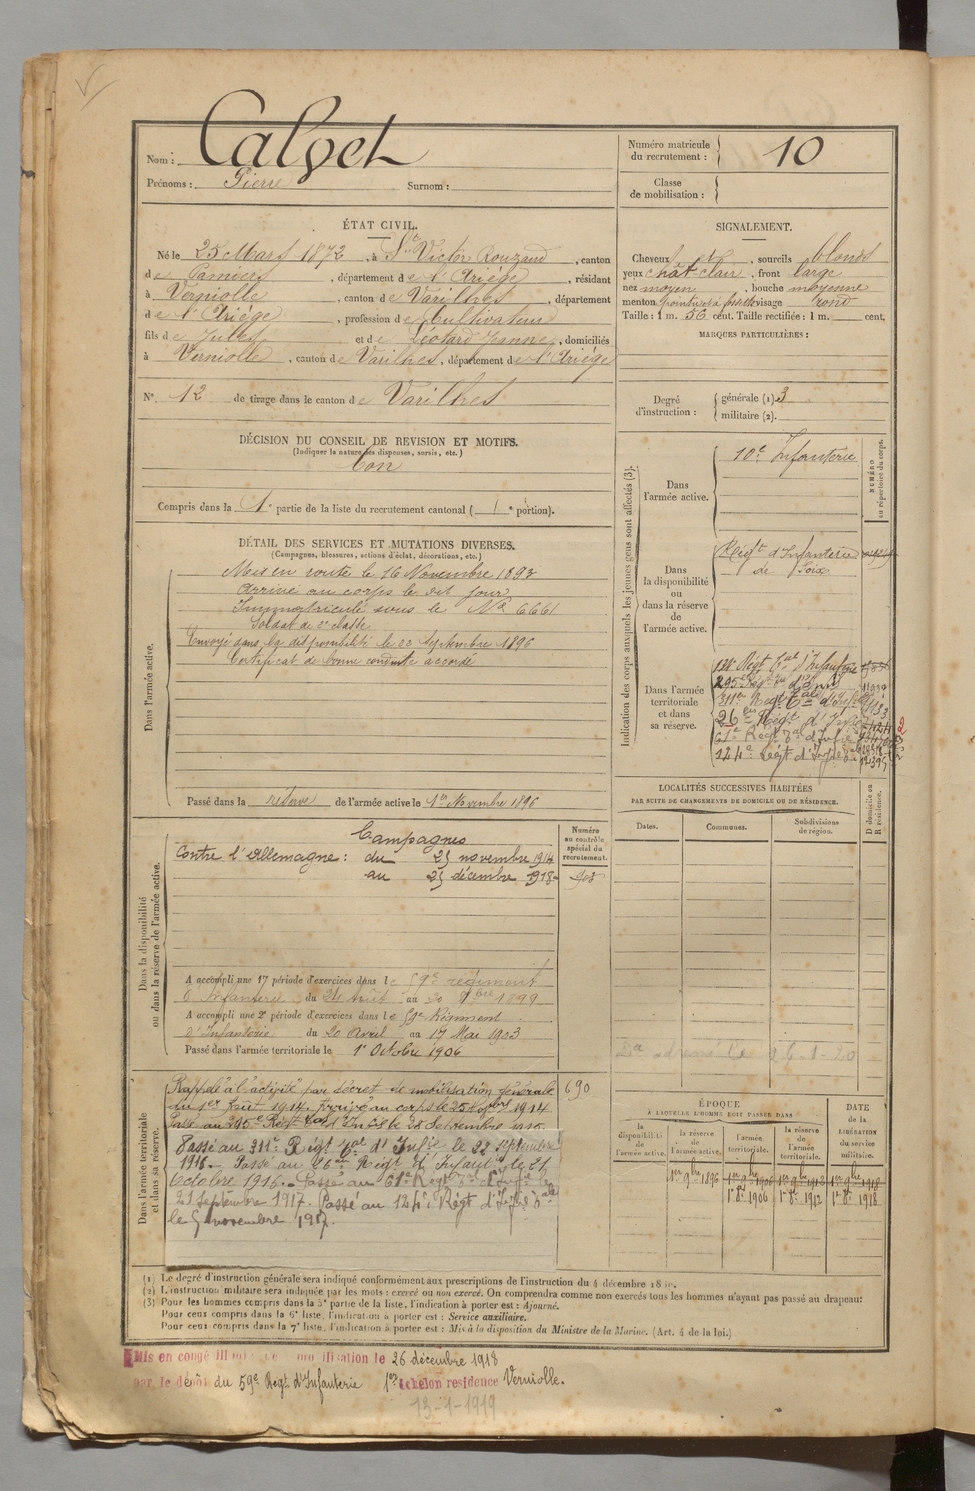 Nom : Calvet
Prénoms : Pierre Surnom :
Numéro matricule du recrutement : 10
Classe de mobilisation :
ÉTAT CIVIL.
Né le 25 Mars 1872, à St Victor Rouzaud, canton
de Pamiers, département de l'Ariège, résidant
à Verniolle, canton de Varilhes, département
de l'Ariège, profession de Cultivateur
fils de Jules et de Léotard Jeanne, domiciliés
à Verniolle, canton de Varilhes, département de l'Ariège
N° 12 de tirage dans le canton de Varilhes
SIGNALEMENT.
Cheveux et, sourcils blonds
yeux chât. clair, front large
nez moyen, bouche moyenne
menton pointu et à fossette visage rond
Taille : 1 m. 56 cent. Taille rectifiée : 1 m. cent.
MARQUES PARTICULIÈRES :
Degré d'instruction : générale (1) 3
militaire (2).
DÉCISION DU CONSEIL DE REVISION ET MOTIFS.
(Indiquer la nature des dispenses, sursis, etc.)
Bon
Compris dans la 1e partie de la liste du recrutement cantonal ( 1e portion).
DÉTAIL DES SERVICES ET MUTATIONS DIVERSES.
(Campagnes, blessures, actions d'éclat, décorations, etc.)
Dans l'armée active.
Mis en route le 16 Novembre 1893
Arrivé au corps le dit jour
Immatriculé sous le No 6661
Soldat de 2e classe
Envoyé dans la disponibilité le 22 Septembre 1896
Certificat de bonne conduite accordé
Passé dans la réserve de l'armée active le 1er Novembre 1896
Indication des corps auxquels les jeunes gens sont affectés (3).
NUMÉRO au répertoire du corps.
Dans l'armée active.
10e Infanterie
Dans la disponibilité ou dans la réserve de l'armée active.
Régt d'Infanterie
de Foix
Dans l'armée territoriale et dans sa réserve.
Régt Tal d'Infanterie
295e Régt
311e Régt Tal d'Infie
26e Régt d'Infie
61e Régt Tal d'Infie
124e Régt d'Infie
LOCALITÉS SUCCESSIVES HABITÉES
PAR SUITE DE CHANGEMENTS DE DOMICILE OU DE RÉSIDENCE.
Dates. Communes. Subdivisions de région. D domicile ou R résidence.
Dans la disponibilité ou dans la réserve de l'armée active.
Numéro au contrôle spécial du recrutement.
Campagnes
Contre l'Allemagne : du 25 novembre 1914
au 25 décembre 1918
A accompli une 1e période d'exercices dans le 59e régiment
d'Infanterie du 24 Août au 20 9bre 1899
A accompli une 2e période d'exercices dans le 59e Régiment
d'Infanterie du 20 Avril au 17 Mai 1903
Passé dans l'armée territoriale le 1er Octobre 1906
Dans l'armée territoriale et dans sa réserve.
690
Rappelé à l'activité par décret de mobilisation générale
du 1er Août 1914. Arrivé au corps le 25 Novbre 1914
Passé au 295e Régt d'Infie le 28 Septembre
Passé au 311e Régt Tal d'Infie le 22 Septembre
1916. Passé au 26e Régt d'Infanie le 21
Octobre 1916. Passé au 61e Régt Tal d'Infie le
21 Septembre 1917. Passé au 124e Régt d'Infie Tale
le 5 novembre 1917.
ÉPOQUE
A LAQUELLE L'HOMME DOIT PASSER DANS
la disponibilité de l'armée active. la réserve de l'armée active. l'armée territoriale. la réserve de l'armée territoriale. DATE de la LIBÉRATION du service militaire.
1er 9bre 1896 1er 9bre 1906 1er 9bre 1912 1er 9bre 1918
1er 8bre 1906 1er 8bre 1912 1er 8bre 1918
(1) Le degré d'instruction générale sera indiqué conformément aux prescriptions de l'instruction du 4 décembre
(2) L'instruction militaire sera indiquée par les mots : exercé ou non exercé. On comprendra comme non exercés tous les hommes n'ayant pas passé au drapeau :
(3) Pour les hommes compris dans la 5e partie de la liste, l'indication à porter est : Ajourné.
Pour ceux compris dans la 6e liste, l'indication à porter est : Service auxiliaire.
Pour ceux compris dans la 7e liste, l'indication à porter est : Mis à la disposition du Ministre de la Marine. (Art. 4 de la loi.)
Mis en congé illimité de démobilisation le 26 décembre 1918
par le dépôt du 59e Régt d'Infanterie 1er échelon résidence Verniolle.
13-1-1919